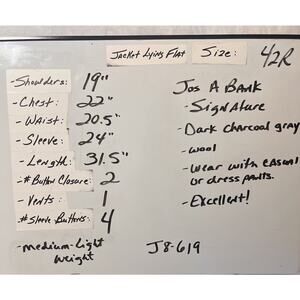 Jacket Lying Flat
Size: 42R
-Shoulders: 19"
-Chest: 22"
-Waist: 20.5"
-Sleeve: 24"
-Length: 31.5"
-#Button Closure: 2
-Vents: 1
#Sleeve Buttons: 4
-medium-Light
weight
Jos A Bank
-Signature
-Dark charcoal gray
-wool
-Wear with casual
or dress pants.
-Excellent!
J8-619